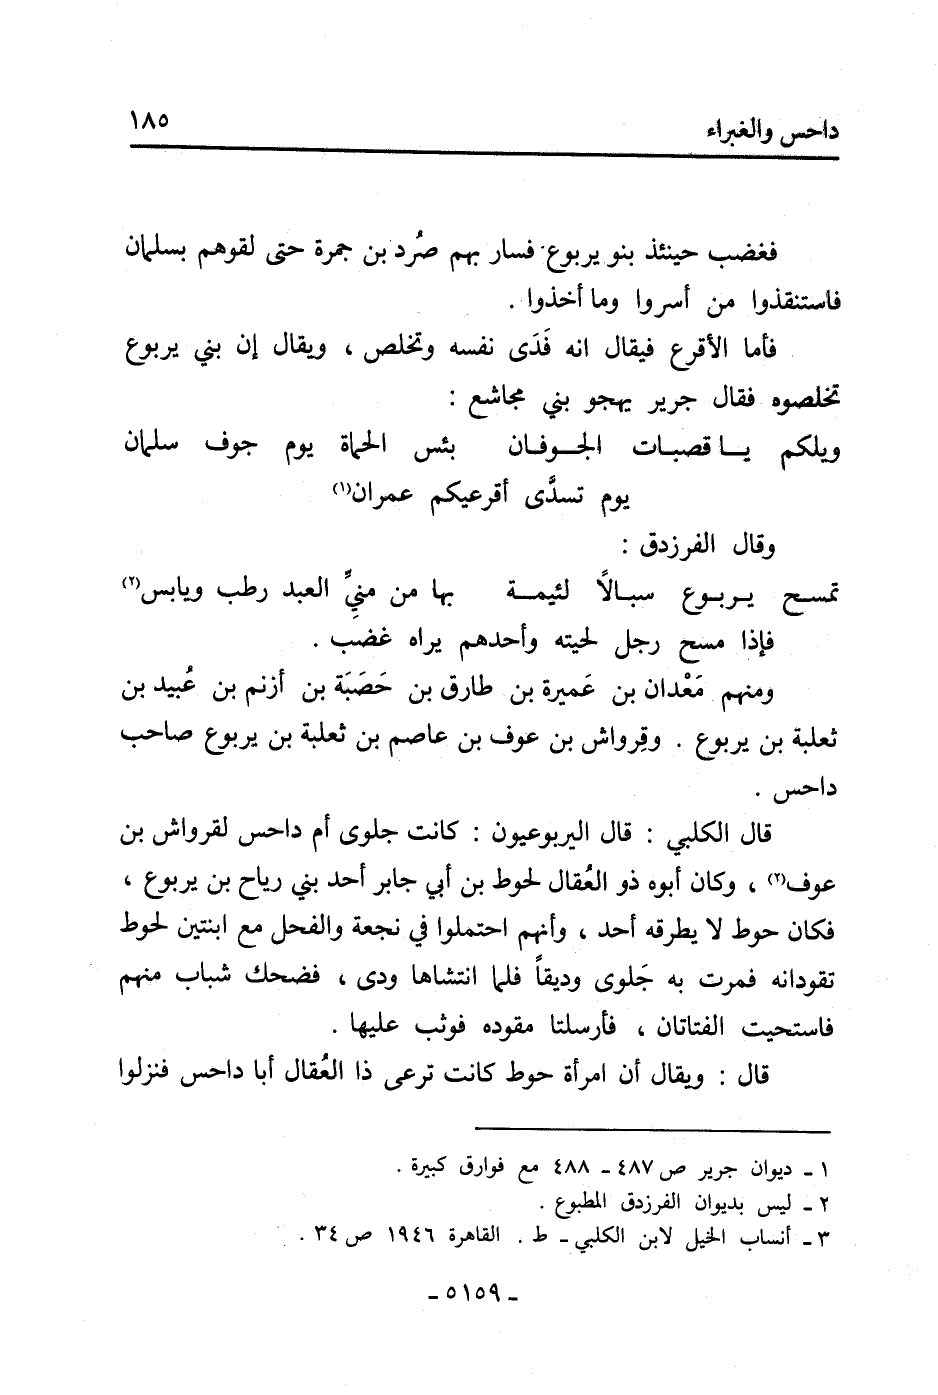 داحس والغبراء ١٨٥
فغضب حينئذ بنو يربوع فسار بهم صُرد بن جمرة حتى لقوهم بسلمان
فاستنقذوا من أسروا وما أخذوا .
فأما الأقرع فيقال انه فَدَى نفسه وتخلص ، ويقال إن بني يربوع
تخلصوه فقال جرير يهجو بني مجاشع :
ويلكم يـا قصبـات الجـوفـان بئس الحماة يوم جوف سلمان
يوم تسدَّى أقرعيكم عمران(١)
وقال الفرزدق :
تمسـح يـربـوع سبـالاً لئيمـة بها من منيِّ العبد رطب ويابس(٢)
فإذا مسح رجل لحيته وأحدهم يراه غضب .
ومنهم مَعْدان بن عَميرة بن طارق بن حَصَبَة بن أزنم بن عُبيد بن
ثعلبة بن يربوع . وقِرواش بن عوف بن عاصم بن ثعلبة بن يربوع صاحب
داحس .
قال الكلبي : قال اليربوعيون : كانت جلوى أم داحس لقرواش بن
عوف(٢) ، وكان أبوه ذو العُقال لحوط بن أبي جابر أحد بني رياح بن يربوع ،
فكان حوط لا يطرقه أحد ، وأنهم احتملوا في نجعة والفحل مع ابنتين لحوط
تقودانه فمرت به جَلوى وديقاً فلما انتشاها ودى ، فضحك شباب منهم
فاستحيت الفتاتان ، فأرسلتا مقوده فوثب عليها .
قال : ويقال أن امرأة حوط كانت ترعى ذا العُقال أبا داحس فنزلوا
١ ـ ديوان جرير ص ٤٨٧ ـ ٤٨٨ مع فوارق كبيرة .
٢ ـ ليس بديوان الفرزدق المطبوع .
٣ ـ أنساب الخيل لابن الكلبي ـ ط . القاهرة ١٩٤٦ ص ٣٤ .
ـ ٥١٥٩ ـ